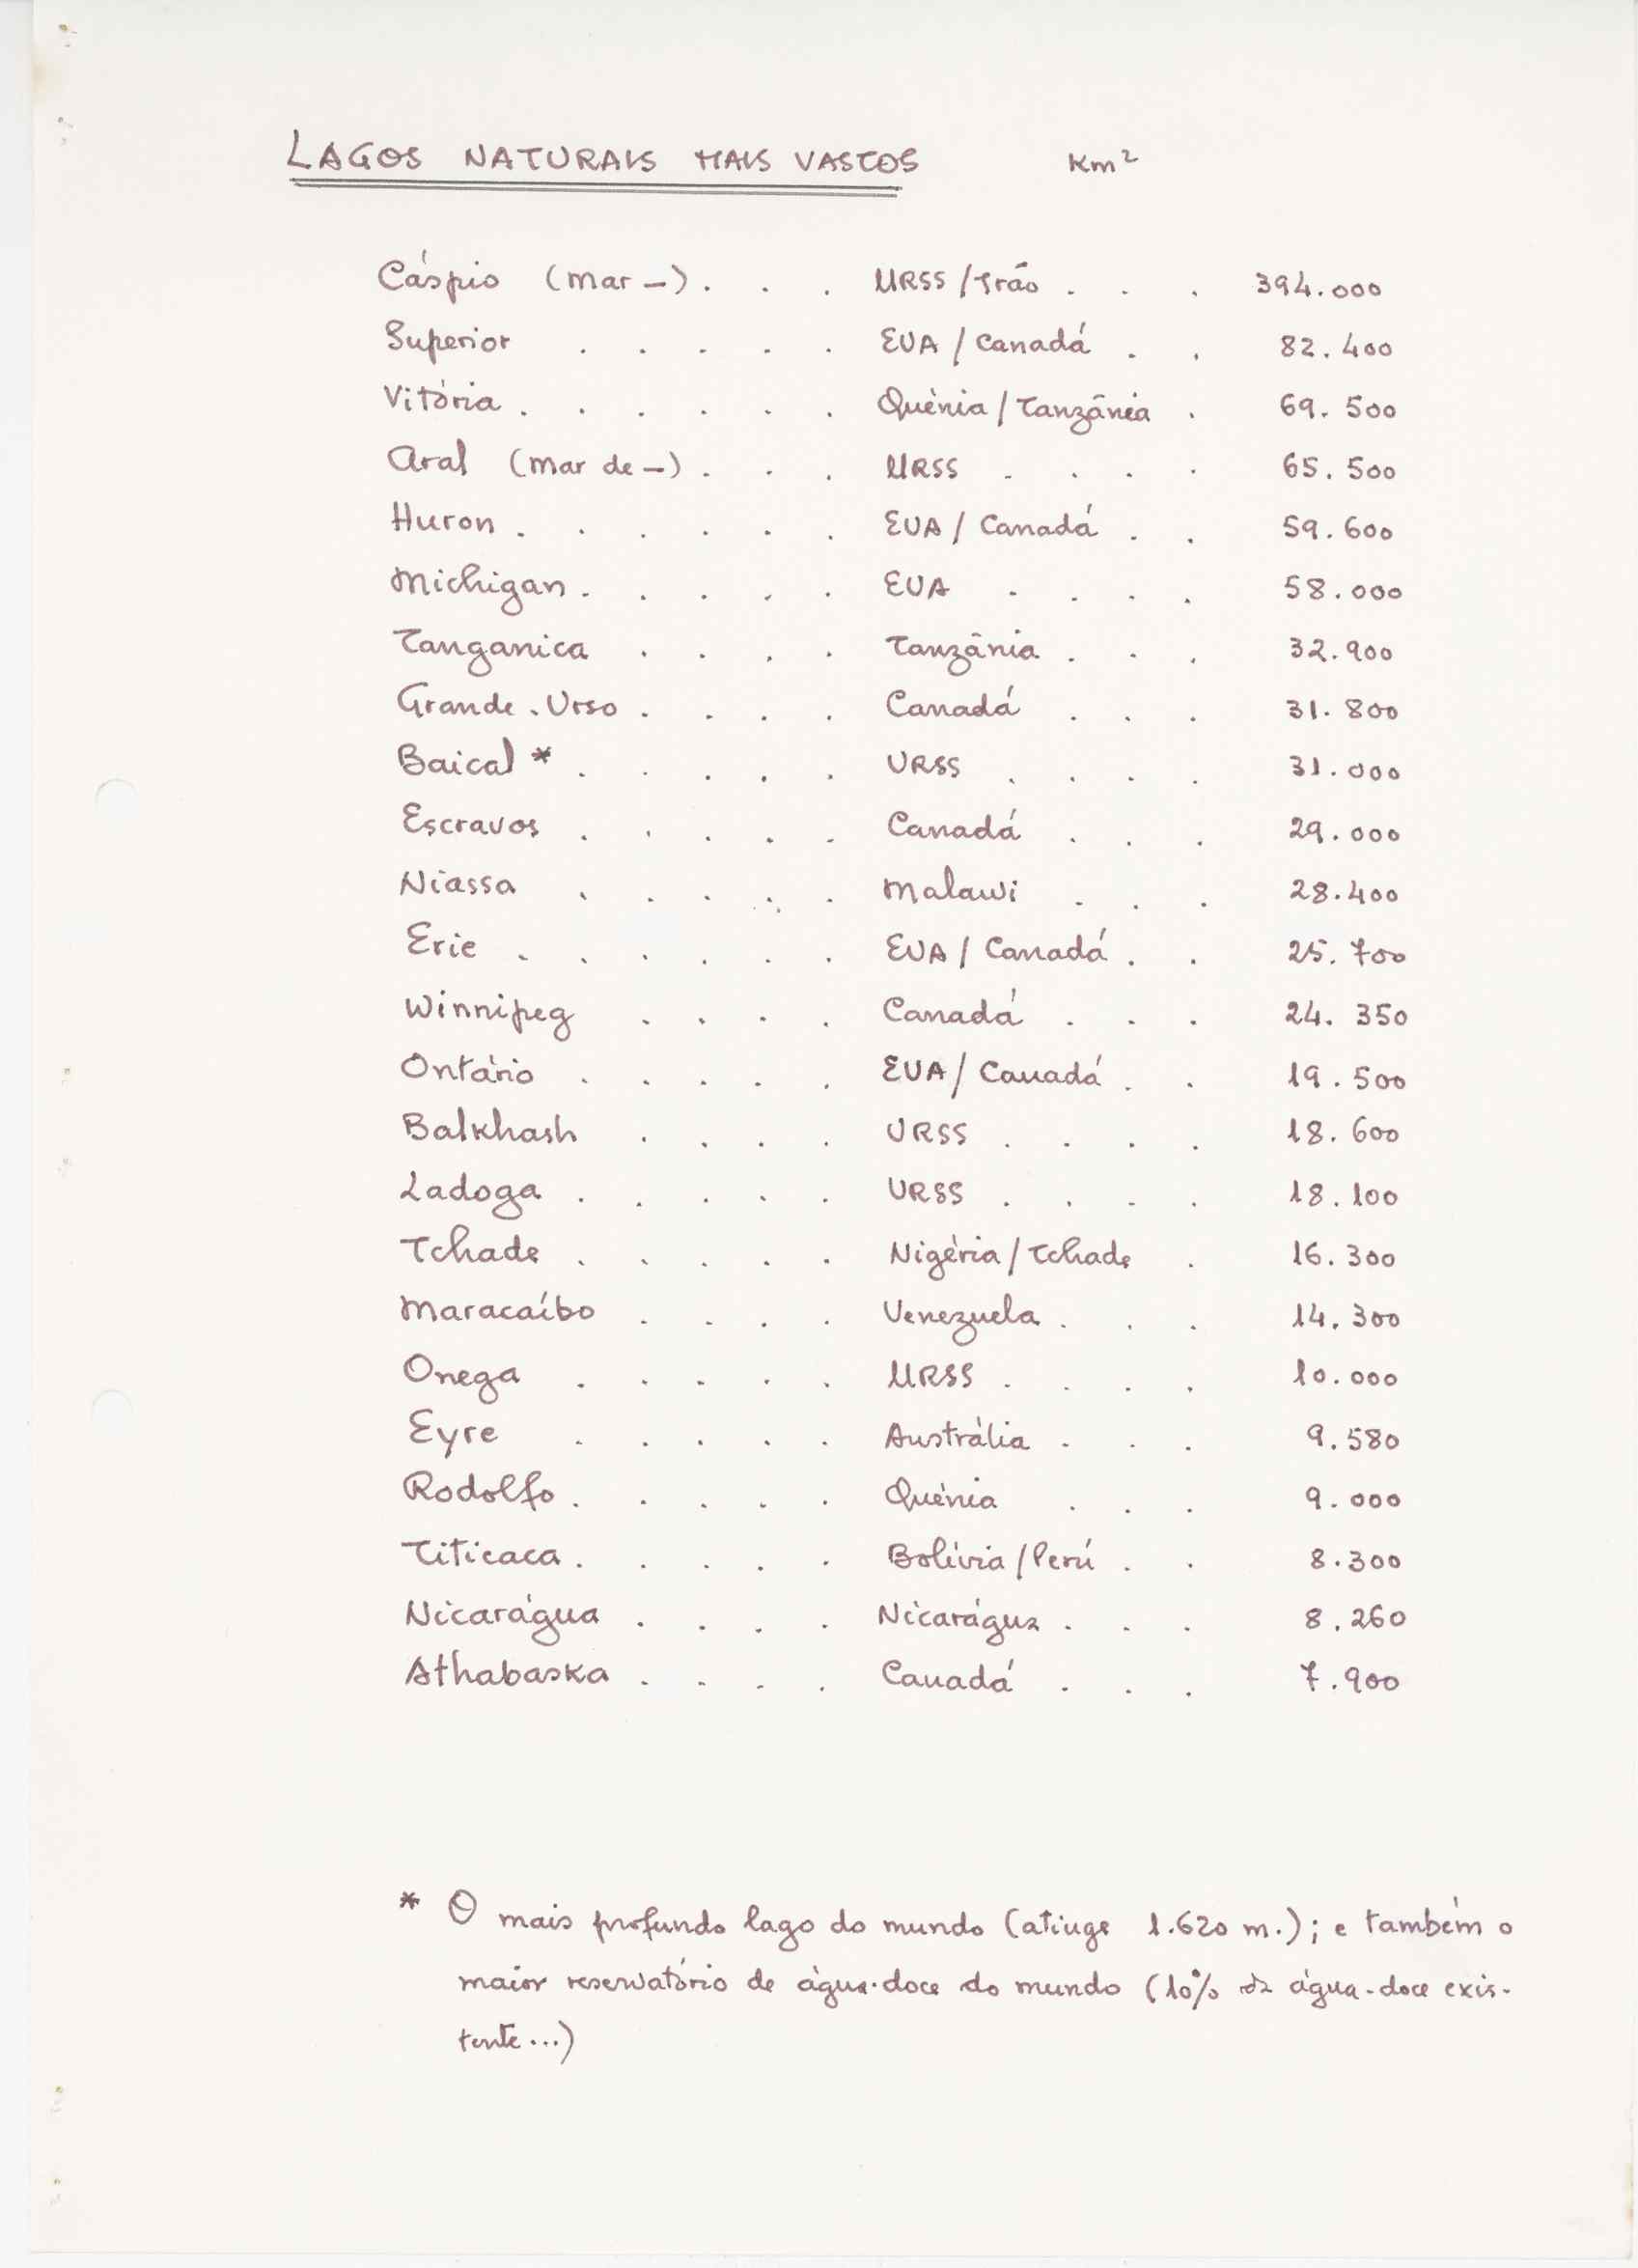 LAGOS NATURAIS MAIS VASTOS Km²
Cáspio (mar –) . . . URSS / Irão . . . 394.000
Superior . . . . . EUA / Canadá . . 82.400
Vitória . . . . . . Quénia / Tanzânia . 69.500
Aral (mar de –) . . . URSS . . . . 65.500
Huron . . . . . . EUA / Canadá . . 59.600
Michigan . . . . . EUA . . . . 58.000
Tanganica . . . . Tanzânia . . . 32.900
Grande-Urso . . . . Canadá . . . 31.800
Baical * . . . . . URSS . . . . 31.000
Escravos . . . . . Canadá . . . 29.000
Niassa . . . . . Malawi . . . 28.400
Erie . . . . . . EUA / Canadá . . 25.700
Winnipeg . . . . Canadá . . . 24.350
Ontário . . . . . EUA / Canadá . . 19.500
Balkhash . . . . URSS . . . . 18.600
Ladoga . . . . . URSS . . . . 18.100
Tchade . . . . . Nigéria / Tchade . 16.300
Maracaíbo . . . . Venezuela . . . 14.300
Onega . . . . . URSS . . . . 10.000
Eyre . . . . . Austrália . . . 9.580
Rodolfo . . . . . Quénia . . . 9.000
Titicaca . . . . . Bolívia / Perú . . 8.300
Nicarágua . . . . Nicarágua . . . 8.260
Athabaska . . . . Canadá . . . 7.900
* O mais profundo lago do mundo (atinge 1.620 m.); e também o
maior reservatório de água-doce do mundo (10% da água-doce exis-
tente...)